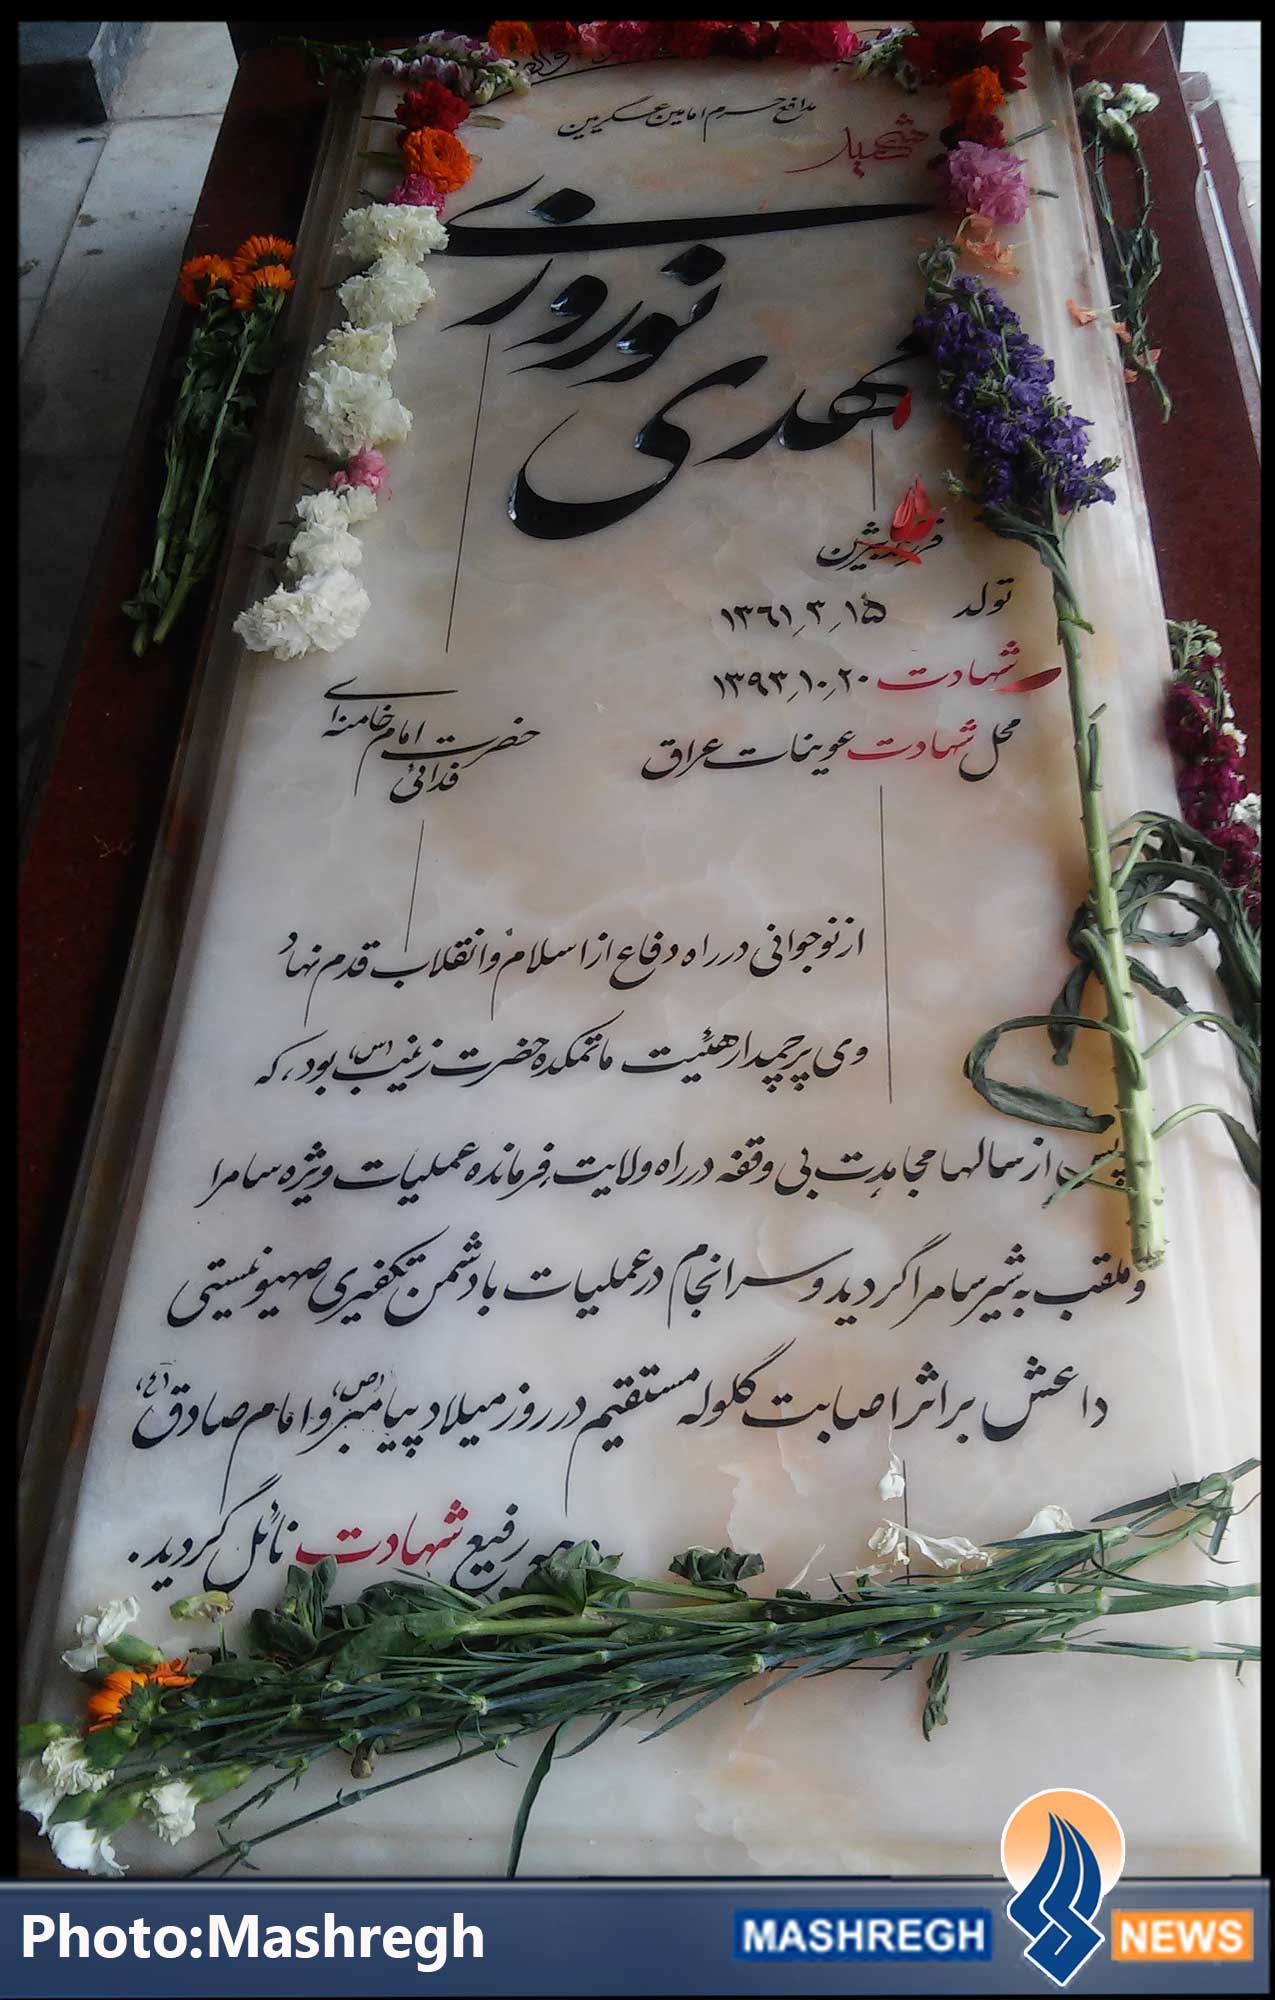 مدافع حرم امامین عسکریین
شهید
مهدی نوروزی
فرزند بیژن
تولد ۱۳۶۱٫۳٫۱۵
شهادت ۱۳۹۳٫۱۰٫۲۰
محل شهادت عوینات عراق
فدائی حضرت امام خامنه ای
از نوجوانی در راه دفاع از اسلام و انقلاب قدم نهاد
وی پرچمدار هئیت ماتمکده حضرت زینب (س) بود، که
پس از سالها مجاهدت بی وقفه در راه ولایت، فرمانده عملیات ویژه سامرا
و ملقب به شیر سامرا گردید و سرانجام در عملیات با دشمن تکفیری صهیونیستی
داعش بر اثر اصابت گلوله مستقیم در روز میلاد پیامبر (ص) و امام صادق (ع)
رفیع شهادت نائل گردید.
Photo:Mashregh
MASHREGH NEWS